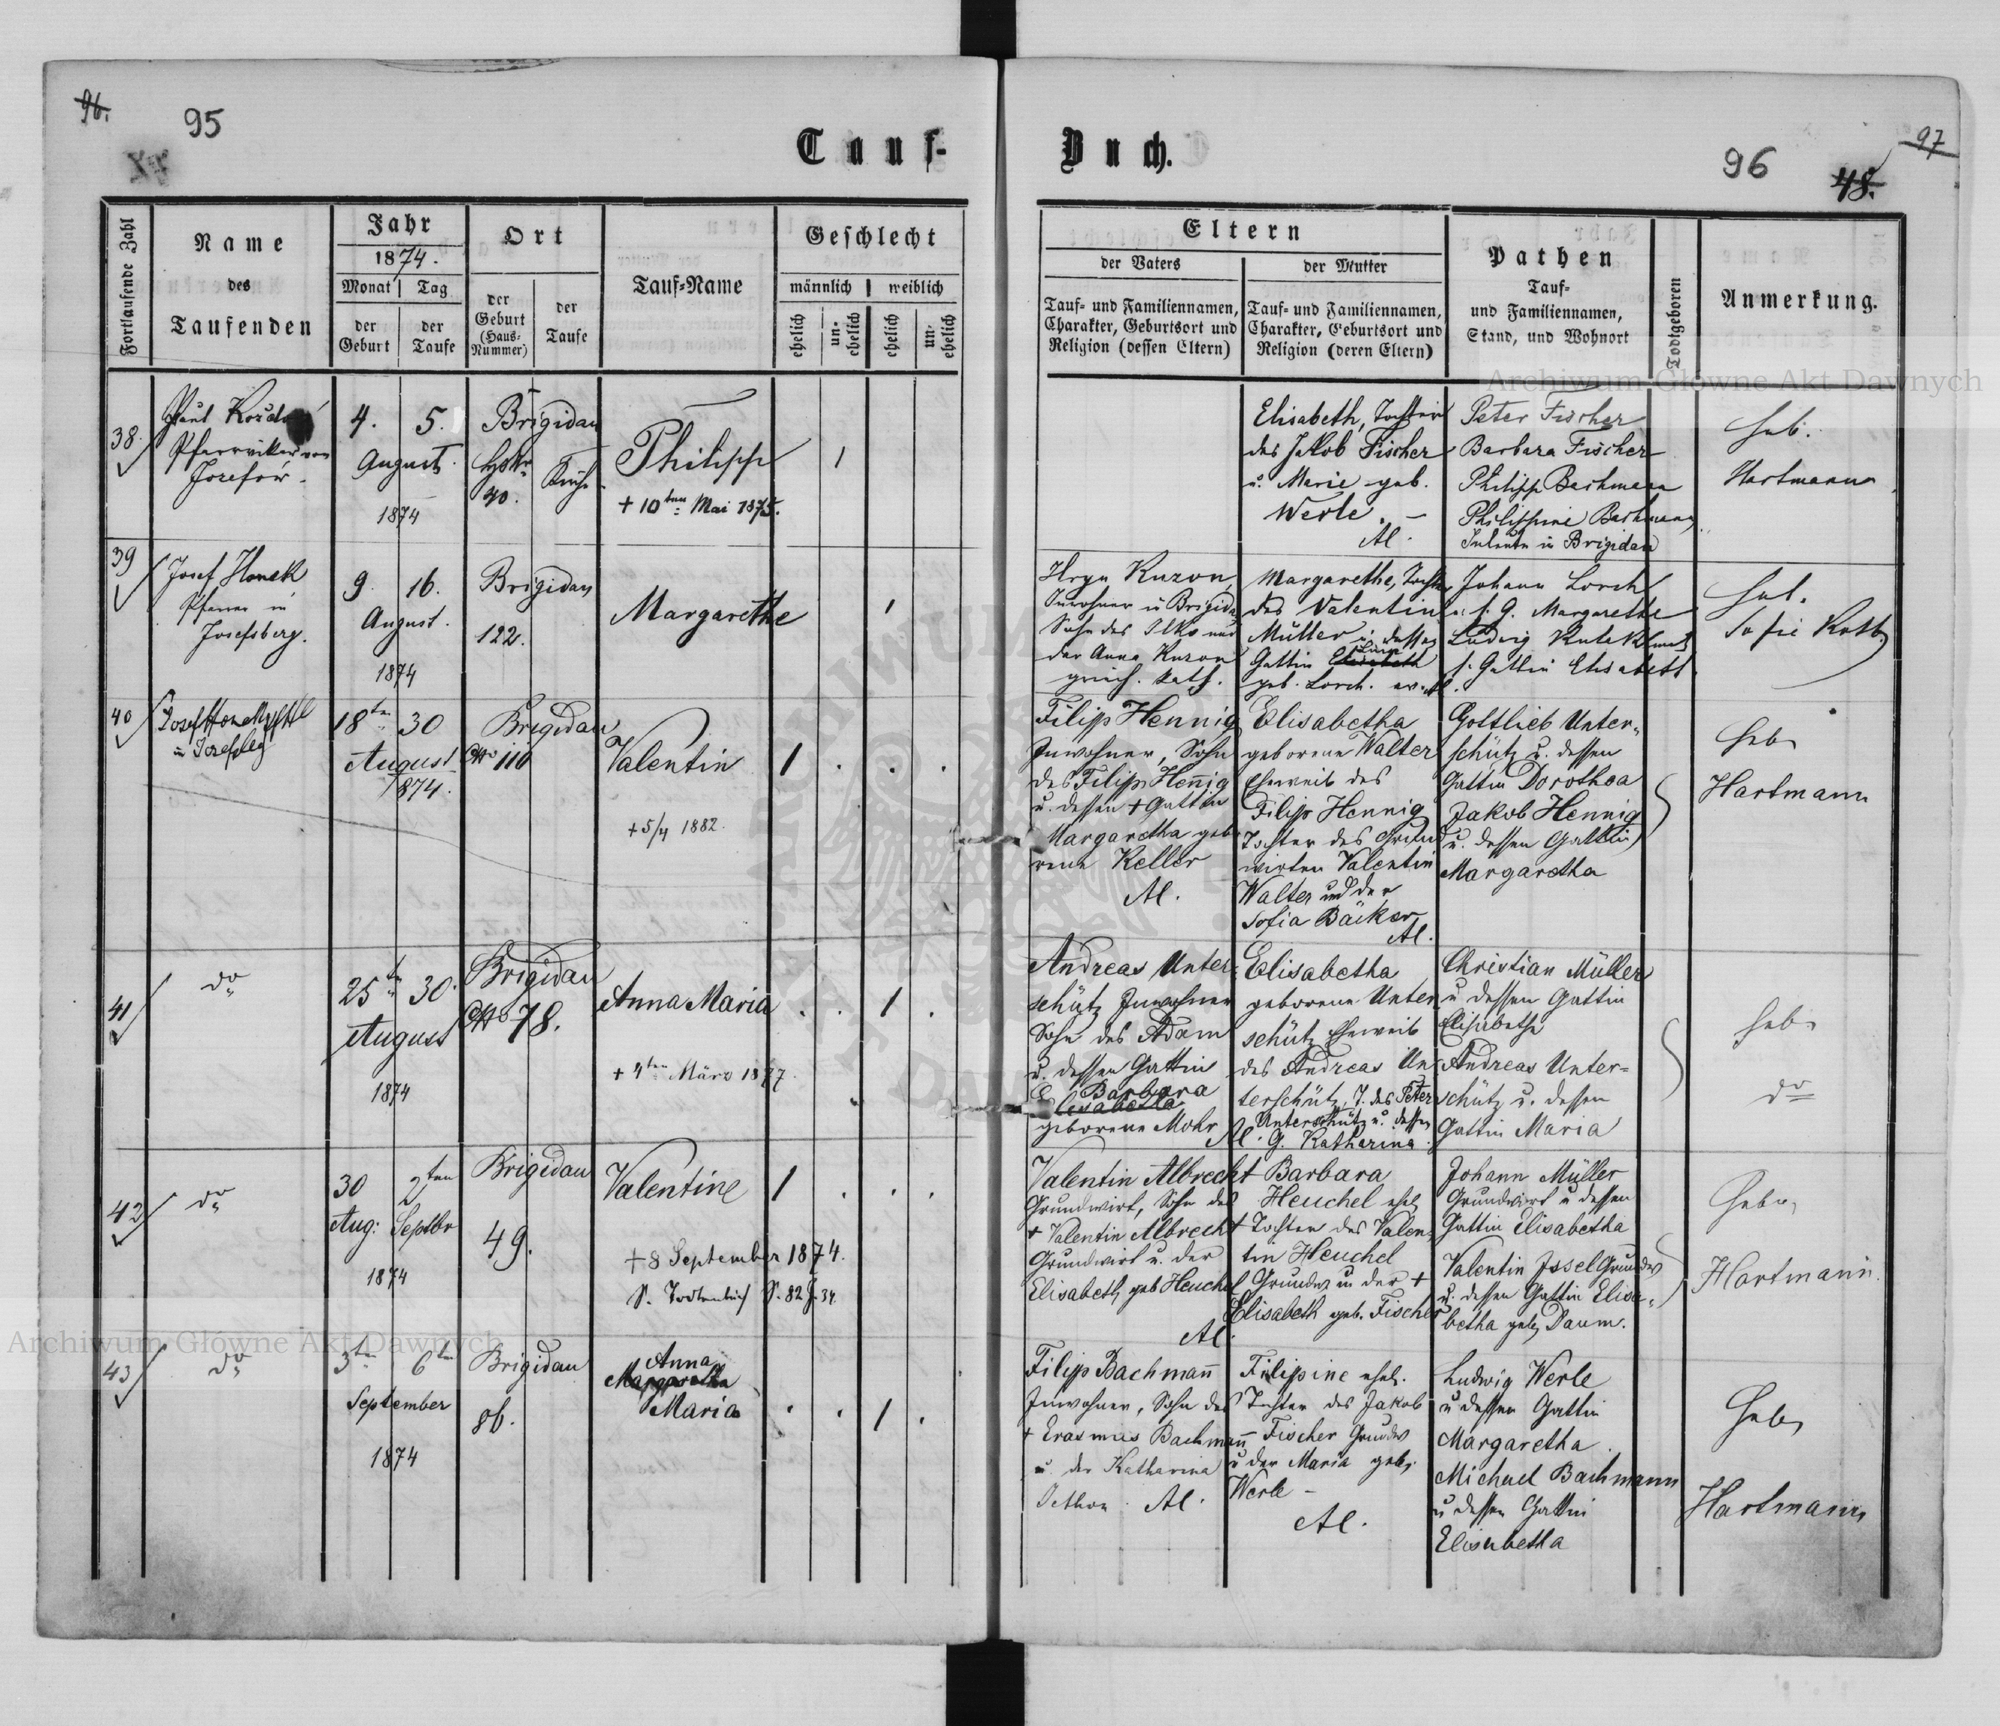 96.
95
Tauf-
Fortlaufende Zahl
Name
des
Taufenden
Jahr
1874.
Monat Tag
der
Geburt
der
Taufe
Ort
der
Geburt
(Haus-
Nummer)
der
Taufe
Tauf-Name
Geschlecht
männlich weiblich
ehelich
un-
ehelich
ehelich
un-
ehelich
38.
Pfarrvikar von
4. 5.
August
1874
Brigidau
40.
Philipp
+ 10ten Mai 1875.
1
39
Josef Honek
Pfarrer in
Josefsberg.
9. 16.
August.
1874
Brigidau
122.
Margarethe
1
40
18ten 30
August
1874.
Brigidau
110
Valentin
+ 5/4 1882.
1
41
do
25ten 30.
August
1874
Brigidau
78.
Anna Maria
+ 4ten März 1877.
1
42
do
30 2ten
Aug: Septbr
1874
Brigidau
49.
Valentine
+ 8 September 1874.
S. Todtenbuch S. 82 J. 34.
1
43
do
3ten 6ten
September
1874
Brigidau
86.
Anna
Margaretha
Maria
1
Buch.
96
97
48.
Eltern
der Vaters
Tauf- und Familiennamen,
Charakter, Geburtsort und
Religion (dessen Eltern)
der Mutter
Tauf- und Familiennamen,
Charakter, Geburtsort und
Religion (deren Eltern)
Pathen
Tauf-
und Familiennamen,
Stand, und Wohnort
Todtgeboren
Anmerkung.
Elisabeth, Tochter
des Jakob Fischer
u. Marie geb.
Werle. –
Al.
Peter Fischer
Barbara Fischer
Philipp Bachmann
Philippine Bachmann
in Brigidau
Heb.
Hartmann
Hryn Kuzon,
Inwohner in Brigidau
Sohn des Ilko und
der Anna Kuzon
griech. kath.
Margarethe, Tochter
des Valentin
Müller u. dessen
Gattin Elisabeth
geb. Lorch. ev. Al.
Johann Lorch
u. s. G. Margarethe
Ludwig
s. Gattin Elisabeth
Heb.
Sofie Roth
Filipp Hennig
Inwohner, Sohn
des Filipp Hennig
u. dessen + Gattin
Margaretha gebo-
rene Keller
Al.
Elisabetha
geborene Walter
Eheweib des
Filipp Hennig
Tochter des Grund
wirten Valentin
Walter und der
Sofia Bäcker
Al.
Gottlieb Unter-
schütz u. dessen
Gattin Dorothea
Jakob Hennig
u. dessen Gattin
Margaretha
Heb.
Hartmann
Andreas Unter-
schütz Inwohner
Sohn des Adam
u. dessen Gattin
Barbara
Elisabetha
geborene Mohr
Al.
Elisabetha
geborene Unter
schütz Eheweib
des Andreas Un-
terschütz, T. des Peter
Unterschütz u. dessen
G. Katharina.
Christian Müller
u dessen Gattin
Elisabetha
Andreas Unter-
schütz u. dessen
Gattin Maria
Heb.
do
Valentin Albrecht
Grundwirt, Sohn des
+ Valentin Albrecht
Grundwirt u. der
Elisabeth geb Heuchel
Al.
Barbara
Heuchel ehel
+ Tochter des Valen-
tin Heuchel
Grundw u der +
Elisabeth geb. Fischer
Johann Müller
Grundwirt u dessen
Gattin Elisabetha
Valentin Issel Grundw
u. dessen Gattin Elisa-
betha geb Daum.
Heb.
Hartmann
Filipp Bachmann
Inwohner, Sohn des
+ Erasmus Bachmann
u. der Katharina
Al.
Filipine ehel.
Tochter des Jakob
Fischer Grundw
u der Maria geb.
Werle –
Al.
Ludwig Werle
u dessen Gattin
Margaretha
Michael Bachmann
u dessen Gattin
Elisabetha
Heb.
Hartmann
Archiwum Główne Akt Dawnych
Archiwum Główne Akt Dawnych